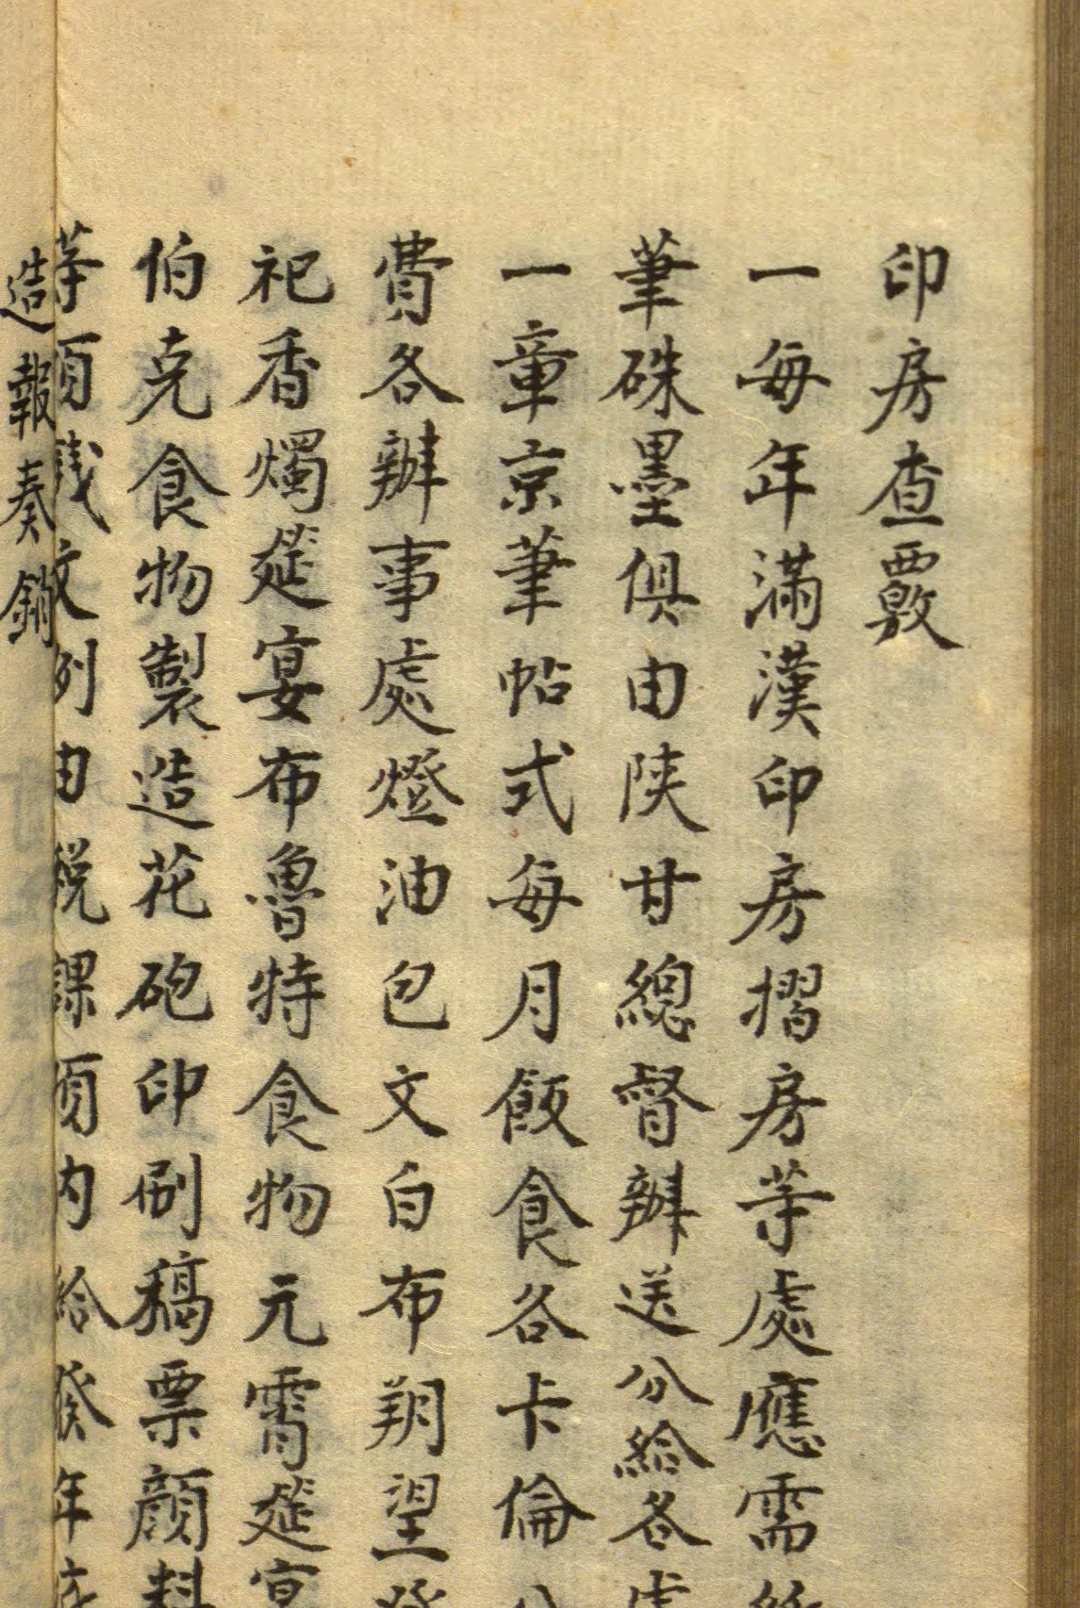 印房查覈
一每年滿漢印房摺房等處應需
筆硃墨俱由陝甘總督辦送分給各處
一章京筆帖式每月飯食各卡倫
費各辦事處燈油包文白布朔望
祀香燭筵宴布魯特食物元霄筵宴
伯克食物製造花砲印刷稿票顏料
等項錢文例由稅課項內給發年底
造報奏銷